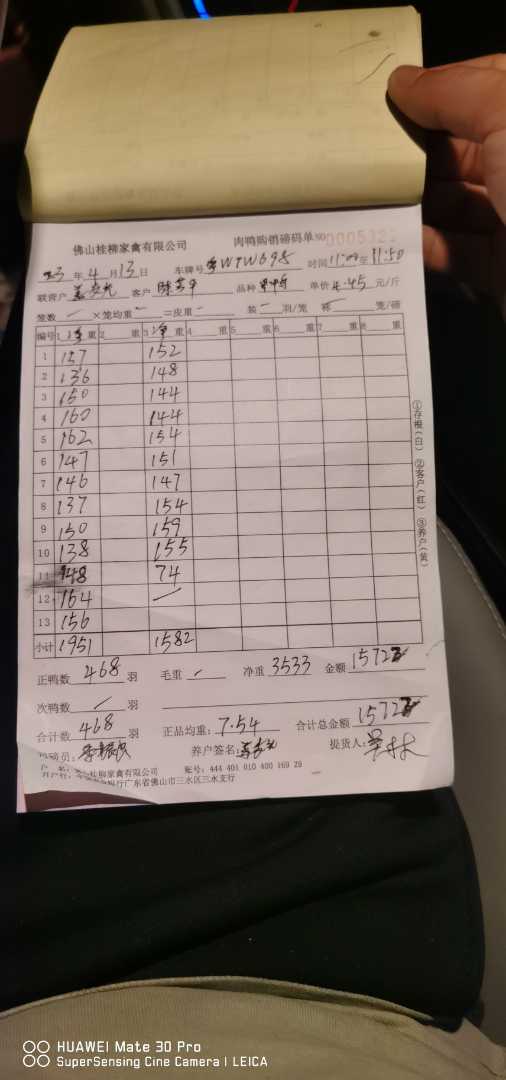 佛山桂柳家禽有限公司 肉鸭购销磅码单 NO 0005321
23 年 4 月 13 日 车牌号 粤WTW698 时间 11:00 至 11:50
联营户 客户 品种 单价 4.45 元/斤
笼数 — ×笼均重 — =皮重 装 — 羽/笼 称 — 笼/磅
编号 1 净 重 2 重 3 净 重 4 重 5 重 6 重 7 重 8 重
1 157 152
2 136 148
3 150 144
4 160 144
5 162 154
6 147 151
7 146 147
8 137 154
9 150 159
10 138 155
11 148 74
12 164 —
13 156
小计 1951 1582
①存根(白) ②客户(红) ③养户(黄)
正鸭数 468 羽 毛重 — 净重 3533 金额 15722
次鸭数 — 羽
合计数 468 羽 正品均重: 7.54 合计总金额 15722
磅员: 养户签名: 提货人:
桂柳家禽有限公司 账号: 444 401 010 400 169 29
银行广东省佛山市三水区三水支行
HUAWEI Mate 30 Pro
SuperSensing Cine Camera | LEICA